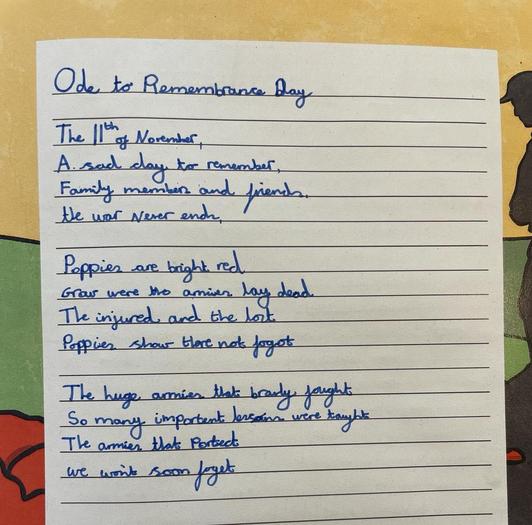 Ode to Remembrance Day
The 11th of November,
A sad day to remember,
Family members and friends,
the war Never ends,
Poppies are bright red
Grow were the armies lay dead
The injured and the lost
Poppies show there not fogot
The huge armies that bravly fought
So many importent lessons were taught
The armies that Portect
we won't soon foget